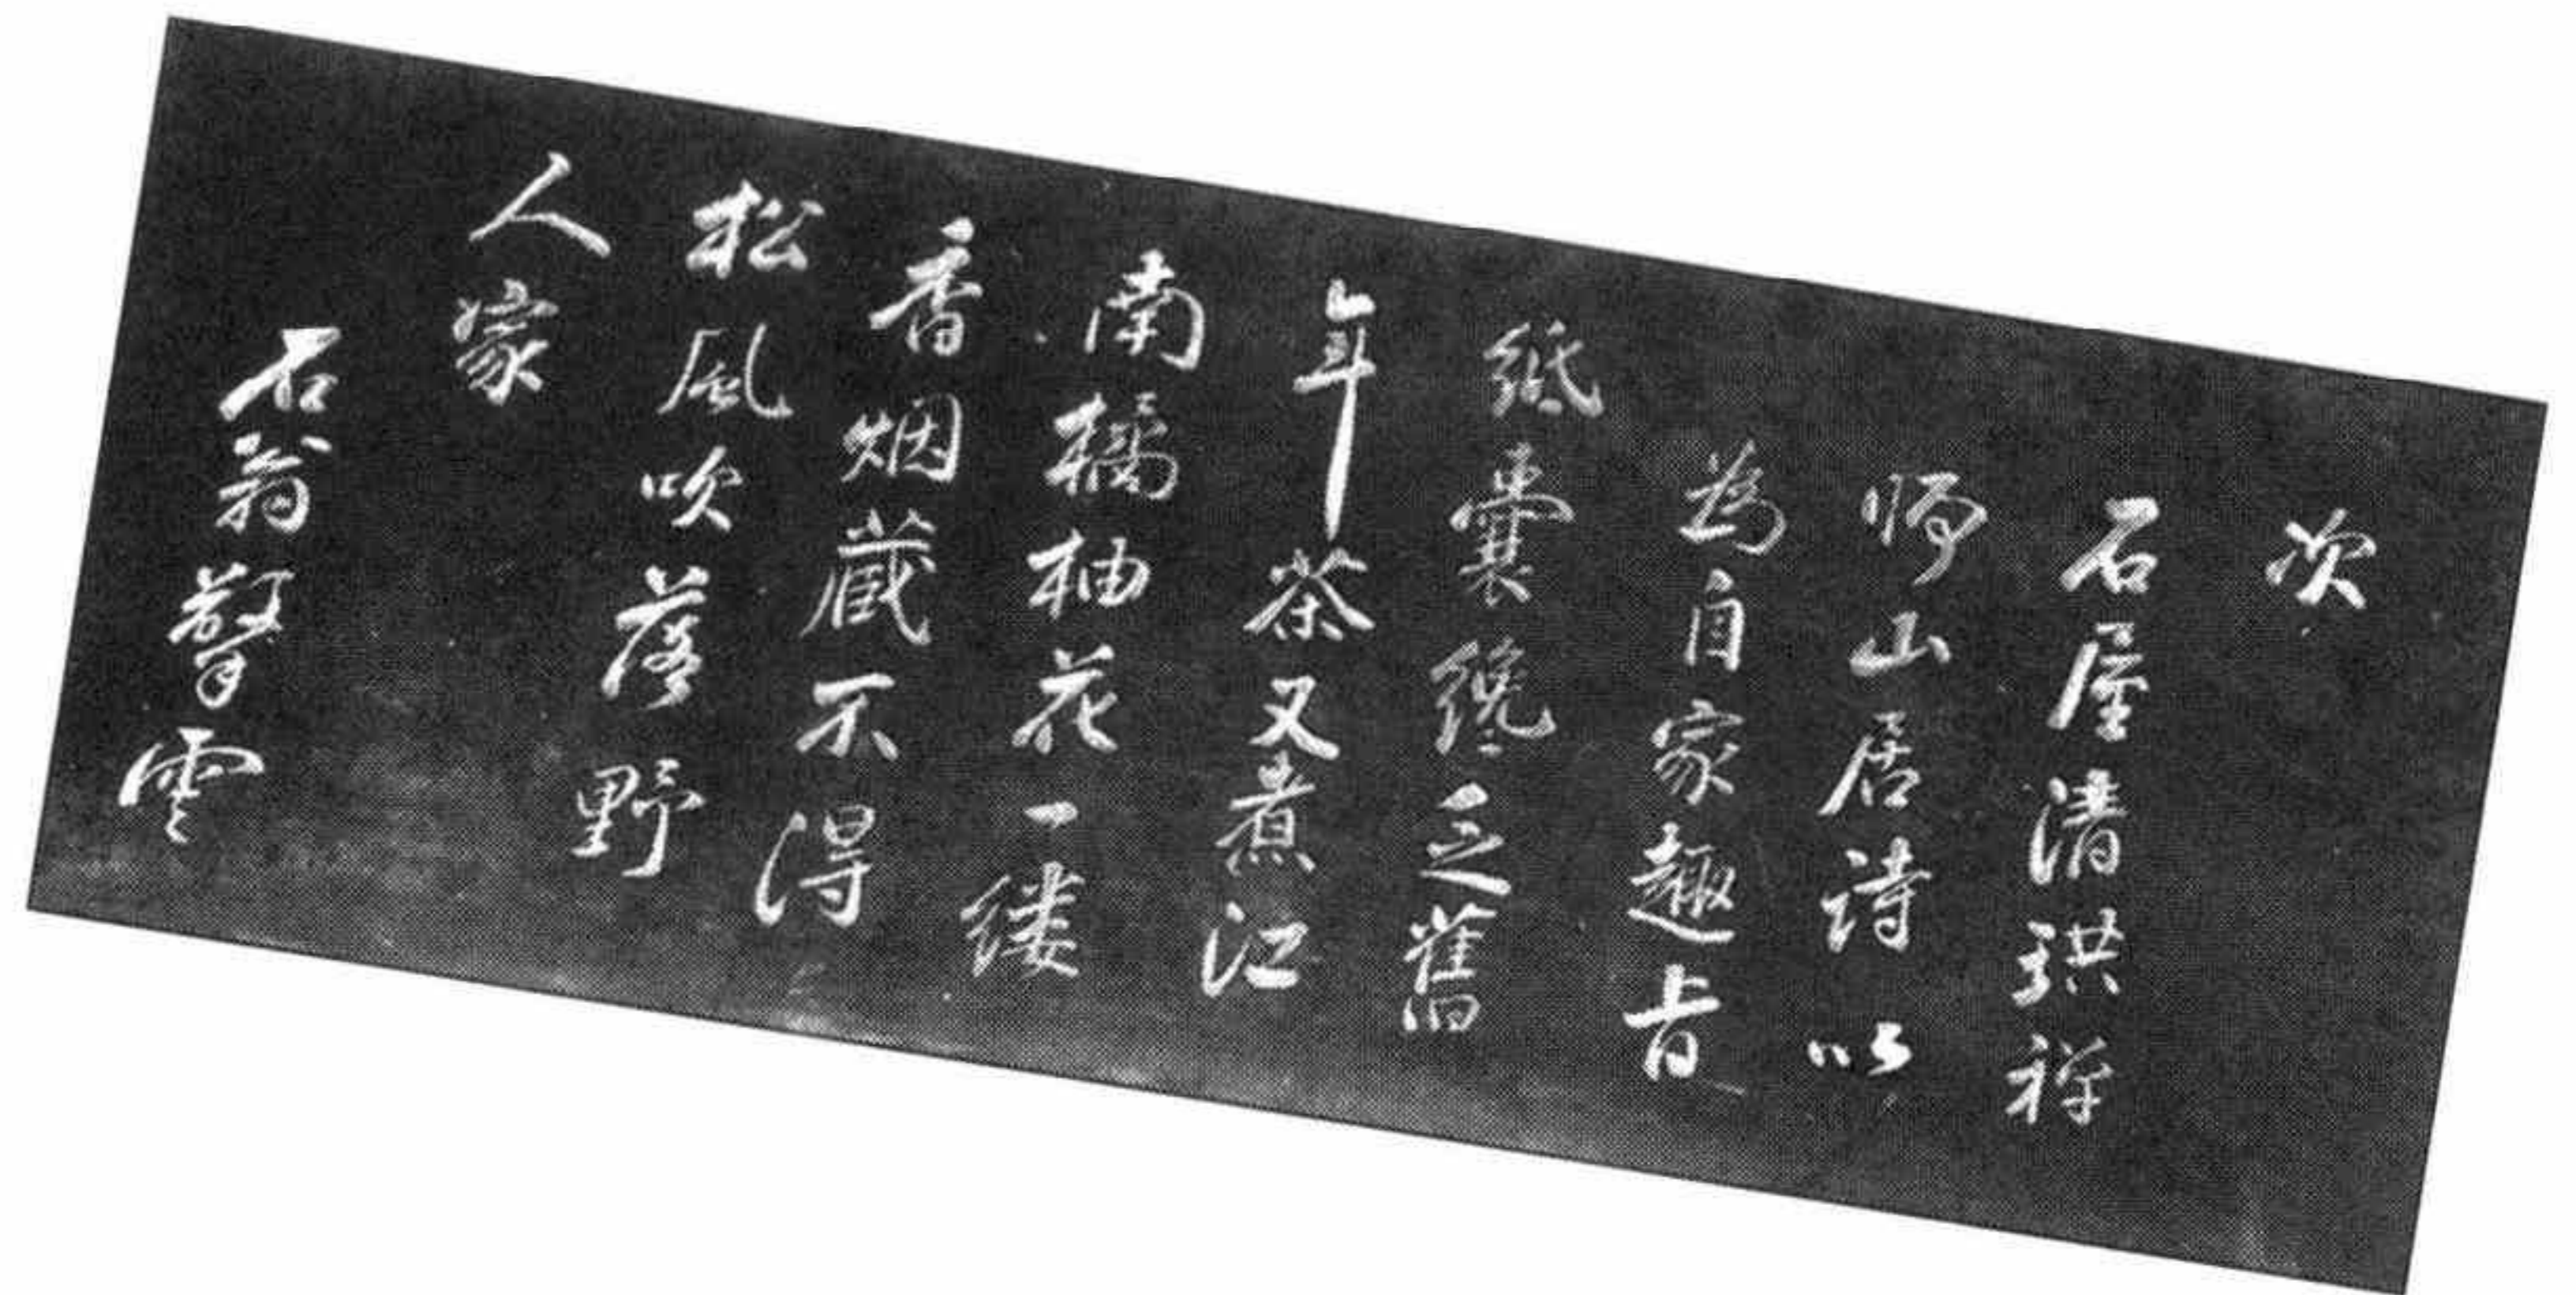 次
石屋清珙禅
师山居诗以
為自家趣旨
纸囊纔乏舊
年茶又煮江
南橘柚花一缕
香烟藏不得
松風吹落野
人家
石翁馨雲